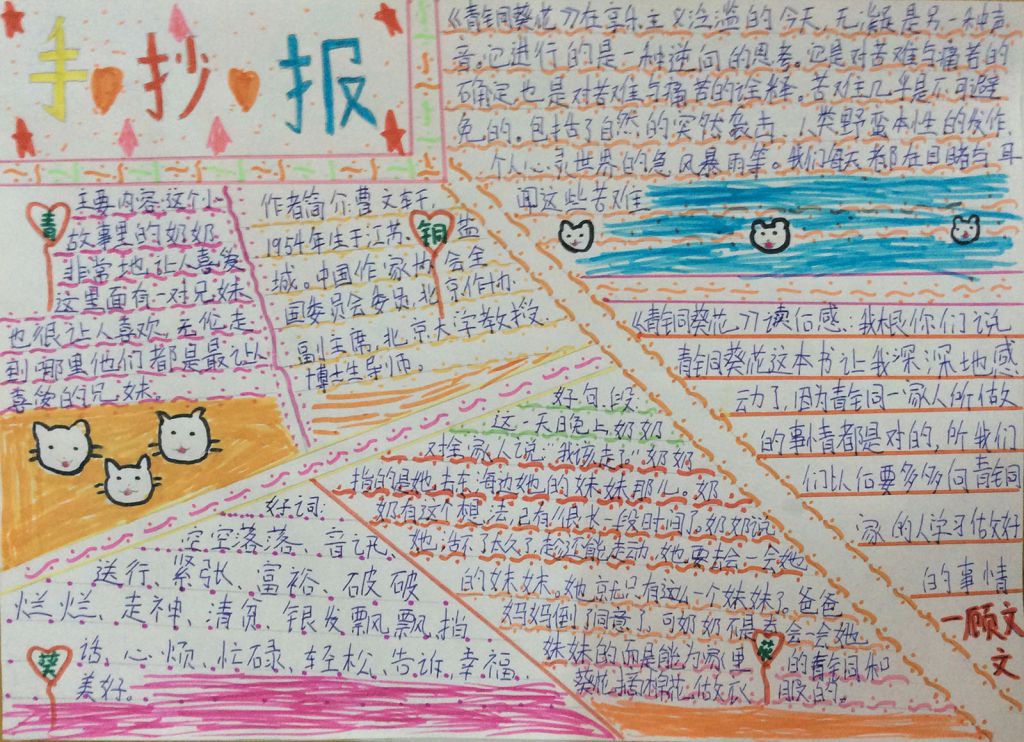 手抄报
《青铜葵花》在享乐主义泛滥的今天,无疑是另一种声
音。它进行的是一种逆向的思考。它是对苦难与痛苦的
确定,也是对苦难与痛苦的诠释。苦难主几乎是不可避
免的。包括了自然的突然袭击,人类野蛮本性的发作,
个人心灵世界的急风暴雨等。我们每天都在目睹与耳
闻这些苦难
青
主要内容:这个小
故事里的奶奶
非常地让人喜爱
这里面有一对兄妹
也很让人喜欢,无伦走
到哪里他们都是最让人
喜爱的兄妹。
作者简介:曹文轩,
铜
1954年生于江苏盐
城。中国作家协会全
国委员会委员,北京作协
副主席,北京大学教授、
博士生导师。
《青铜葵花》读后感:我根你们说
青铜葵花这本书让我深深地感
动了,因为青铜一家人所做
的事情都是对的,所我们
们以后要多多向青铜
家的人学习做好
的事情
一顾文
文
好句段:
这一天日晚上,奶奶
对全家人说:“我该走了”奶奶
指的是她去东海边她的妹妹那儿。奶
奶有这个想法,已有很长一段时间了。奶奶说
她活不了太久了,趁还能走动,她要去会一会她
的妹妹。她就只有这么一个妹妹了。爸爸
妈妈倒了同意了,可奶奶不是去会一会她
妹妹的而是能为家里的青铜和
葵
葵花,摘棉花,做衣服的。
好词:
空空落落、音讯、
送行、紧张、富裕、破破
烂烂、走神、清贫、银发飘飘、挡
话、心烦、忙碌、轻松、告诉、幸福、
美好。
葵